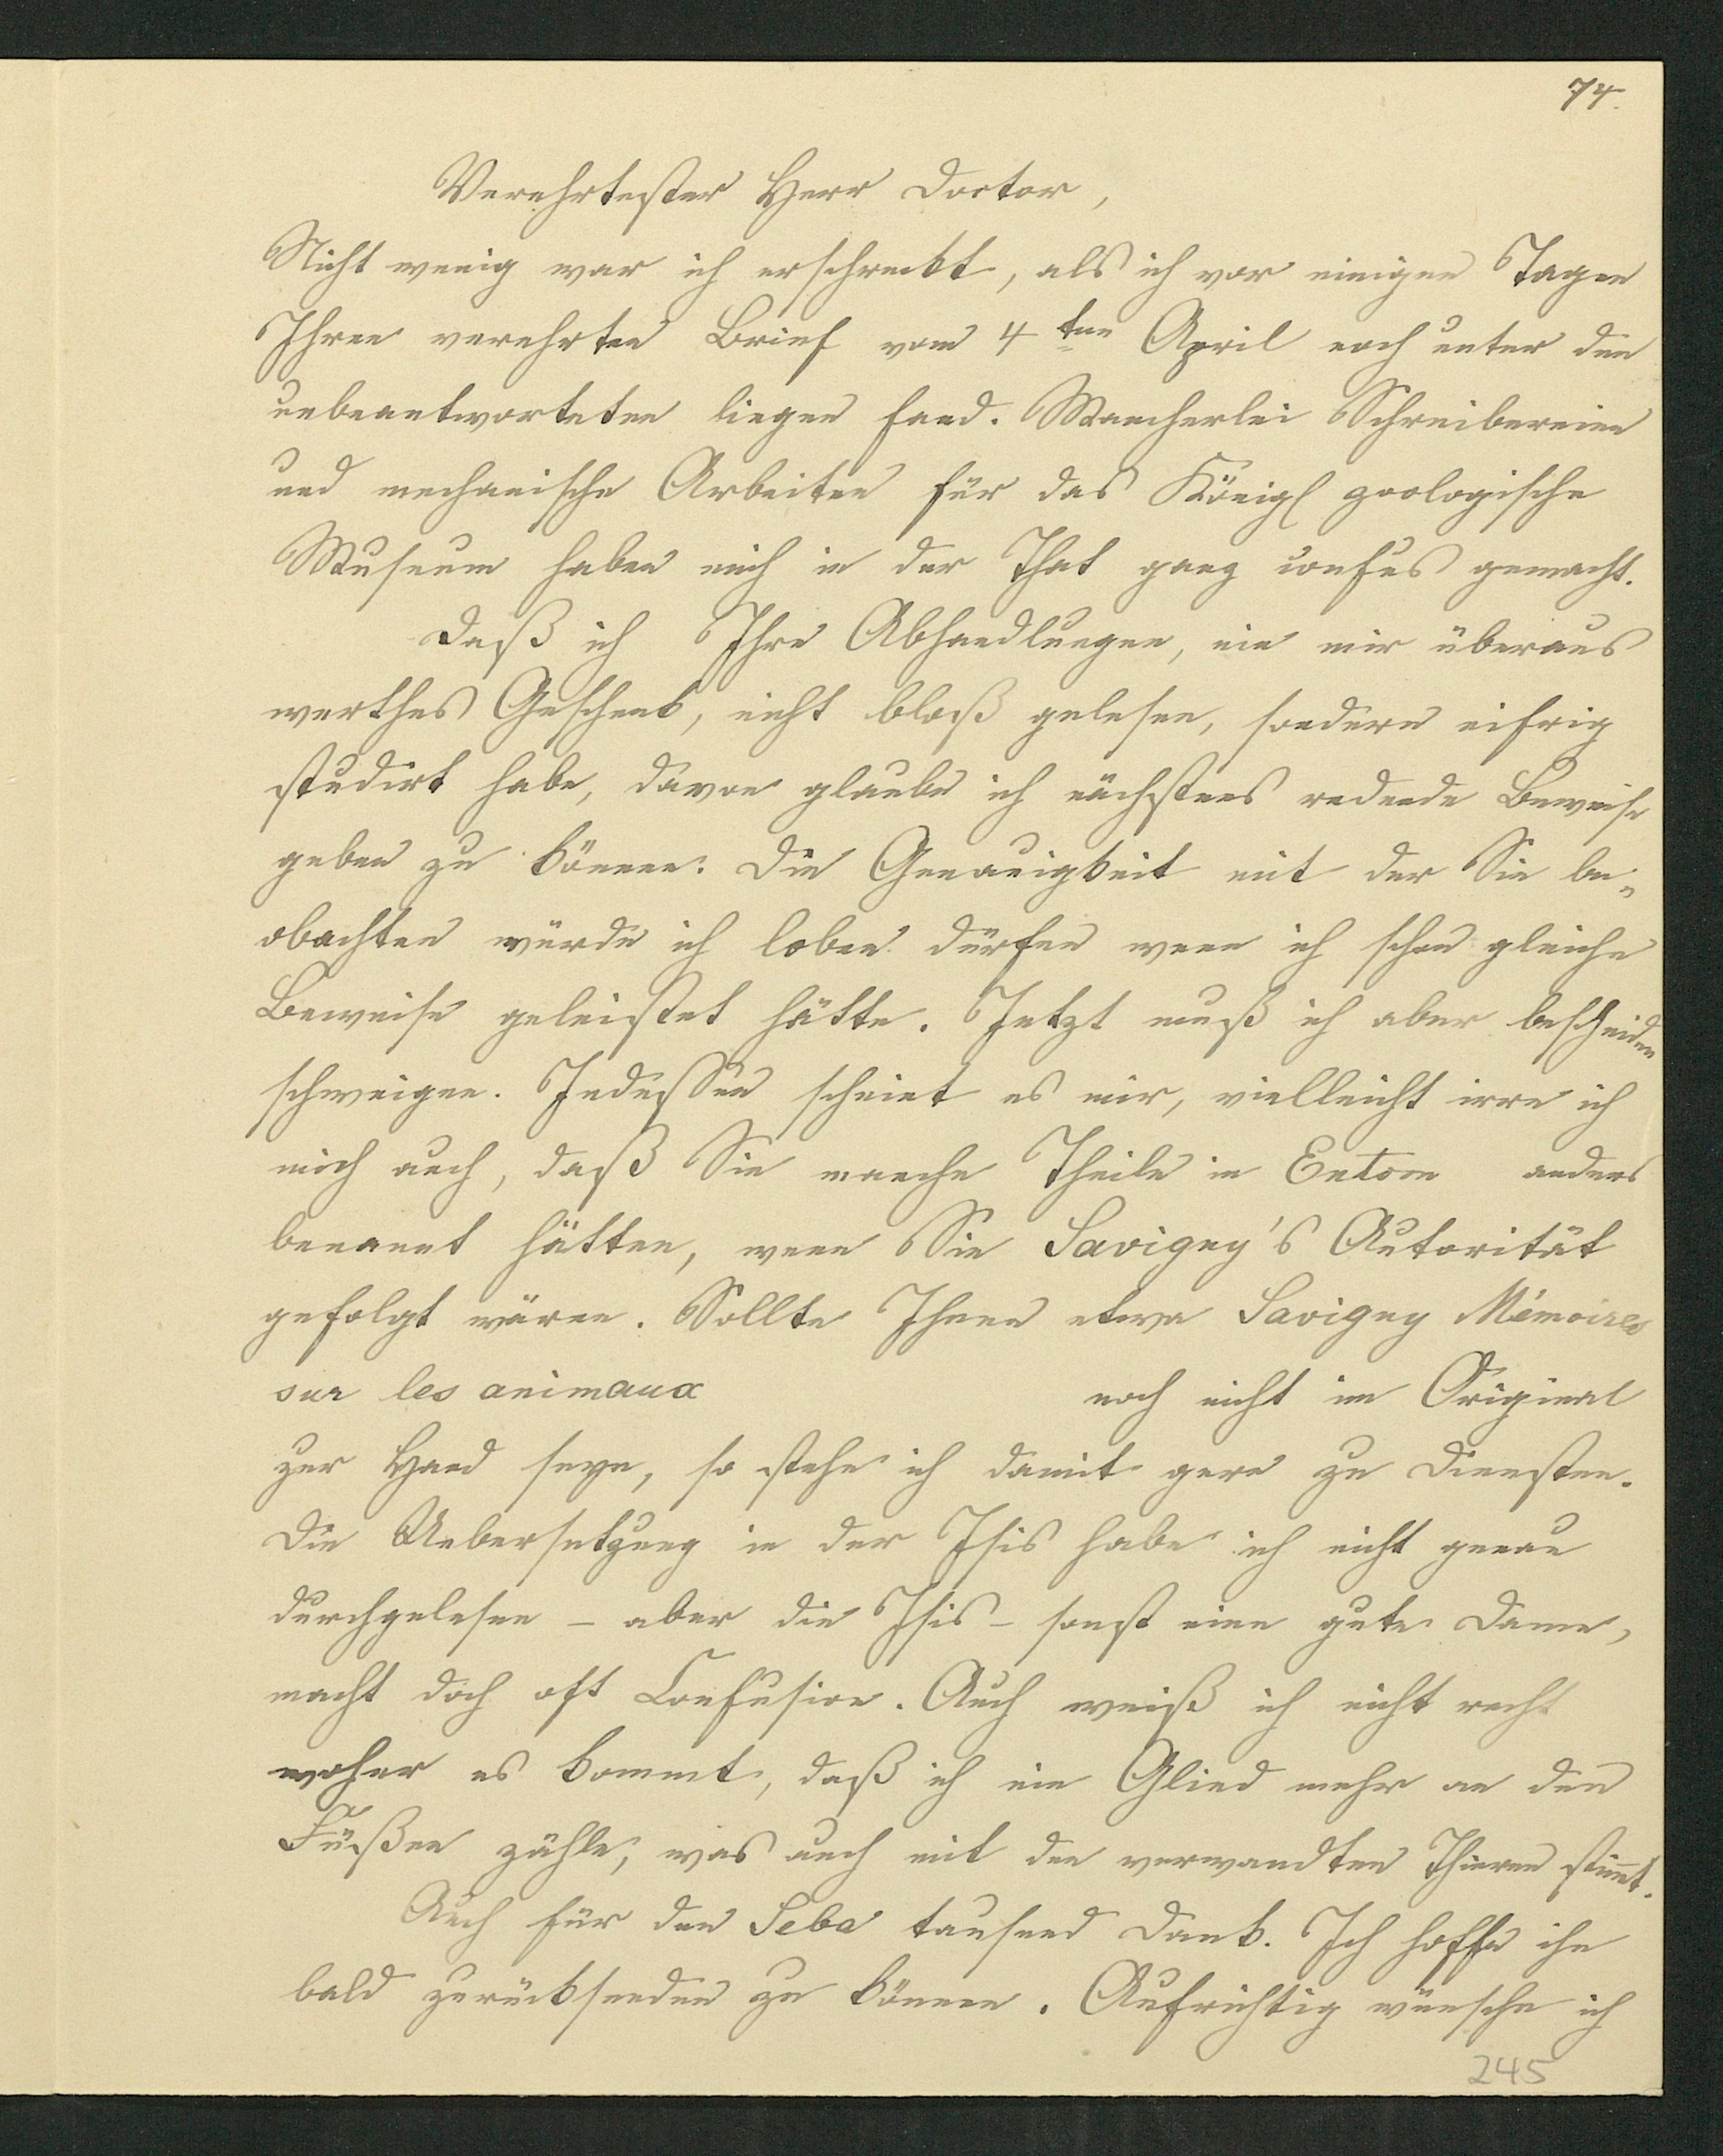 74.
Verehrtester Herr Doctor,
Nicht wenig war ich erschreckt, als ich vor einigen Tagen
Ihren verehrten Brief vom 4ten April noch unter den
unbeantworteten liegen fand. Mancherlei Schreibereien
und mechanische Arbeiten für das Königl zoologische
Museum haben mich in der That ganz confus gemacht.
Daß ich Ihre Abhandlungen, ein mir überaus
werthes Geschenk, nicht bloß gelesen, sondern eifrig
studirt habe, davon glaube ich nächstens redende Beweise
geben zu können. Die Genauigkeit mit der Sie be-
obachten würde ich loben dürfen wenn ich schon gleiche
Beweise geleistet hätte. Jetzt muß ich aber bescheiden
schweigen. Indessen scheint es mir, vielleicht irre ich
mich auch, daß Sie manche Theile in Entom anders
benannt hätten, wenn Sie Savigny's Autorität
gefolgt wären. Sollte Ihnen etwa Savigny Mémoires
sur les animaux noch nicht im Original
zur Hand seyn, so stehe ich damit gern zu Diensten.
Die Uebersetzung in der Isis habe ich nicht genau
durchgelesen – aber die Isis – sonst eine gute Dame,
macht doch oft Confusion. Auch weiß ich nicht recht
woher es kommt, daß ich ein Glied mehr an den
Füßen zähle, was auch mit den verwandten Thieren stimt.
Auch für den Seba tausend Dank. Ich hoffe ihn
bald zurücksenden zu können. Aufrichtig wünsche ich
245